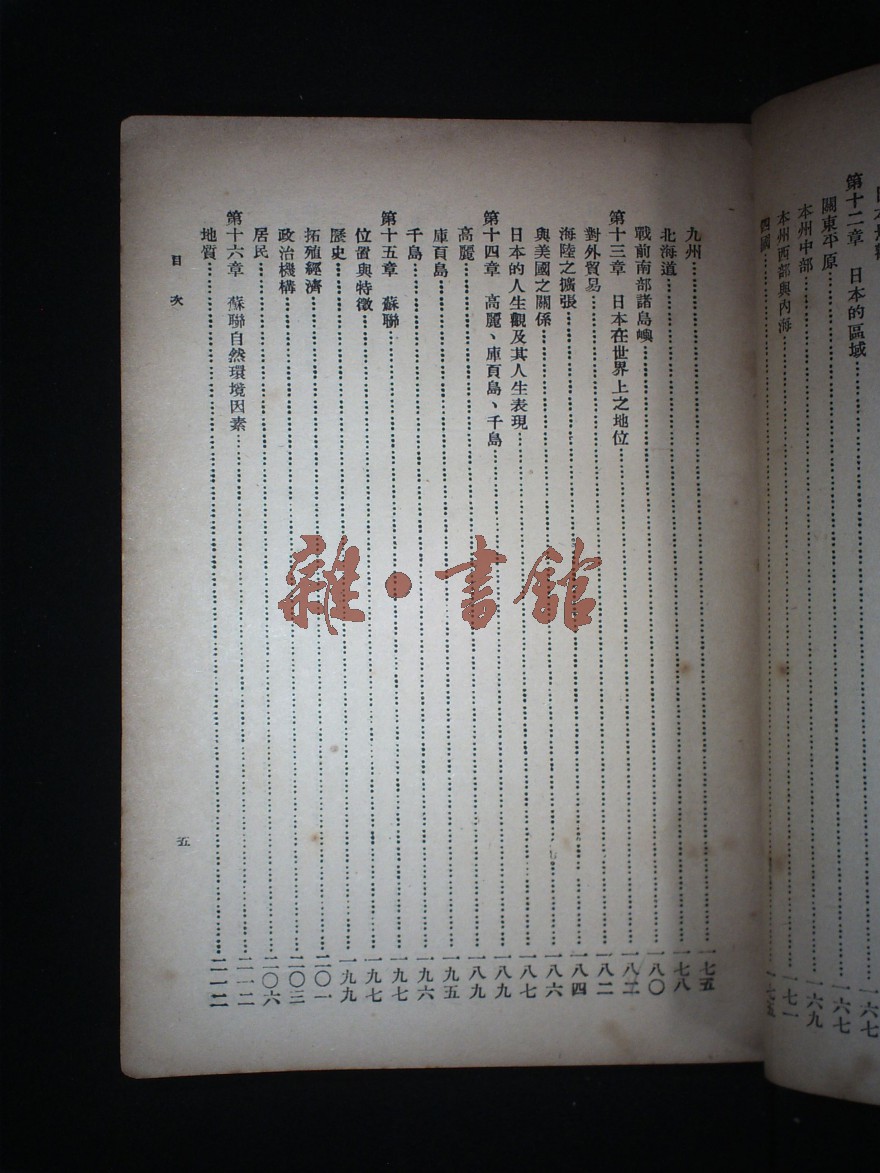 第十二章　日本的區域……一六七
關東平原……一六七
本州中部……一六九
本州西部與內海……一七一
四國……
九州……一七五
北海道……一七八
戰前南部諸島嶼……一八〇
第十三章　日本在世界上之地位……一八二
對外貿易……一八二
海陸之擴張……一八四
與美國之關係……一八六
日本的人生觀及其人生表現……一八七
第十四章　高麗、庫頁島、千島……一八九
高麗……一八九
庫頁島……一九五
千島……一九六
第十五章　蘇聯……一九七
位置與特徵……一九七
歷史……一九九
拓殖經濟……二〇一
政治機構……二〇三
居民……二〇六
第十六章　蘇聯自然環境因素……二一二
地質……二一二
目次
五
雜·書館